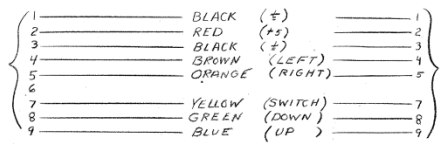 1 BLACK (⏚) 1
2 RED (+5) 2
3 BLACK (⏚) 3
4 BROWN (LEFT) 4
5 ORANGE (RIGHT) 5
6
7 YELLOW (SWITCH) 7
8 GREEN (DOWN) 8
9 BLUE (UP) 9